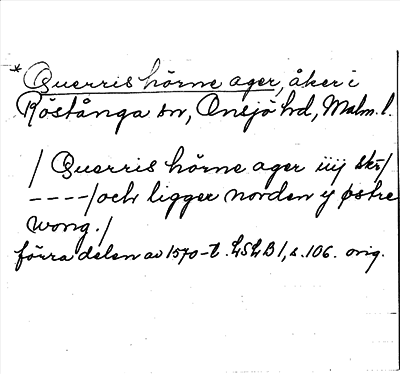 * Querris hörne ager, åker i
Röstånga sn, Onsjö hd, Malm. l.
/ Querris hörne ager iiij skr/
----/och ligger norden y østre
wong./
förra delen av 1570-t. LSLB I, s. 106. orig.